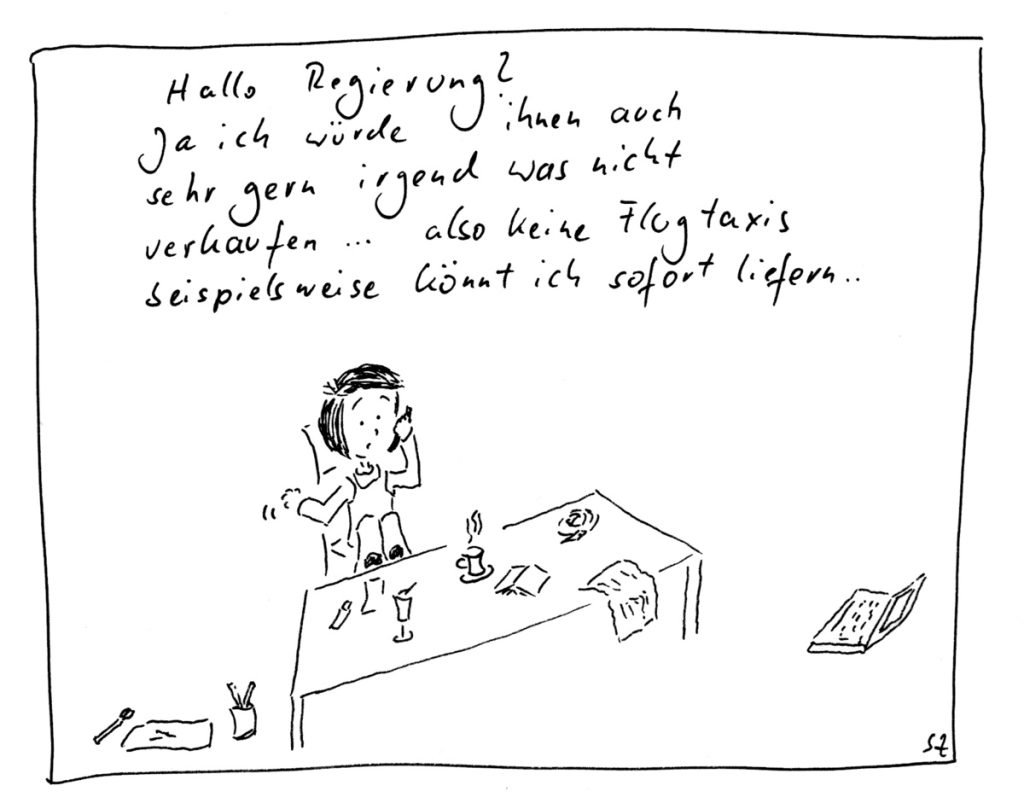 Hallo Regierung?
Ja ich würde ihnen auch
sehr gern irgend was nicht
verkaufen ... also keine Flugtaxis
beispielsweise könnt ich sofort liefern..
SZ